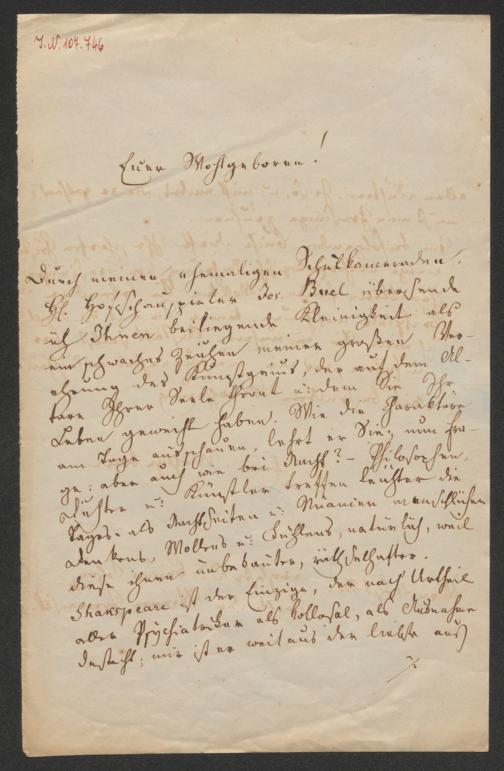 I.N. 107.746
Euer Wohlgeboren!
Durch meinen ehemaligen Schulkameraden,
H. Hofschauspieler Jos. Buel übersende
ich Ihnen beiliegende Kleinigkeit als
ein schwaches Zeichen meiner großen Ver-
ehrung des Kunstgenius, der auf dem Al-
tare Ihrer Seele thront u: dem Sie Ihr
Leben geweiht haben. Wie die Charaktere
am Tage ausschauen, lehrt er Sie; nun Fra-
ge: aber auch wie bei Nacht? – Philosophen,
Dichter u: Künstler treffen leichter die
Tages- als Nachtseiten u: Nuancen menschlichen
Denkens, Wollens u: Fühlens, natürlich, weil
diese ihnen unbekannter, räthselhafter.
Shakspeare ist der Einzige, der nach Urtheil
aller Psychiatriker als Kollosal, als Ausnahme
dasteht; mir ist er weitaus der liebste auch